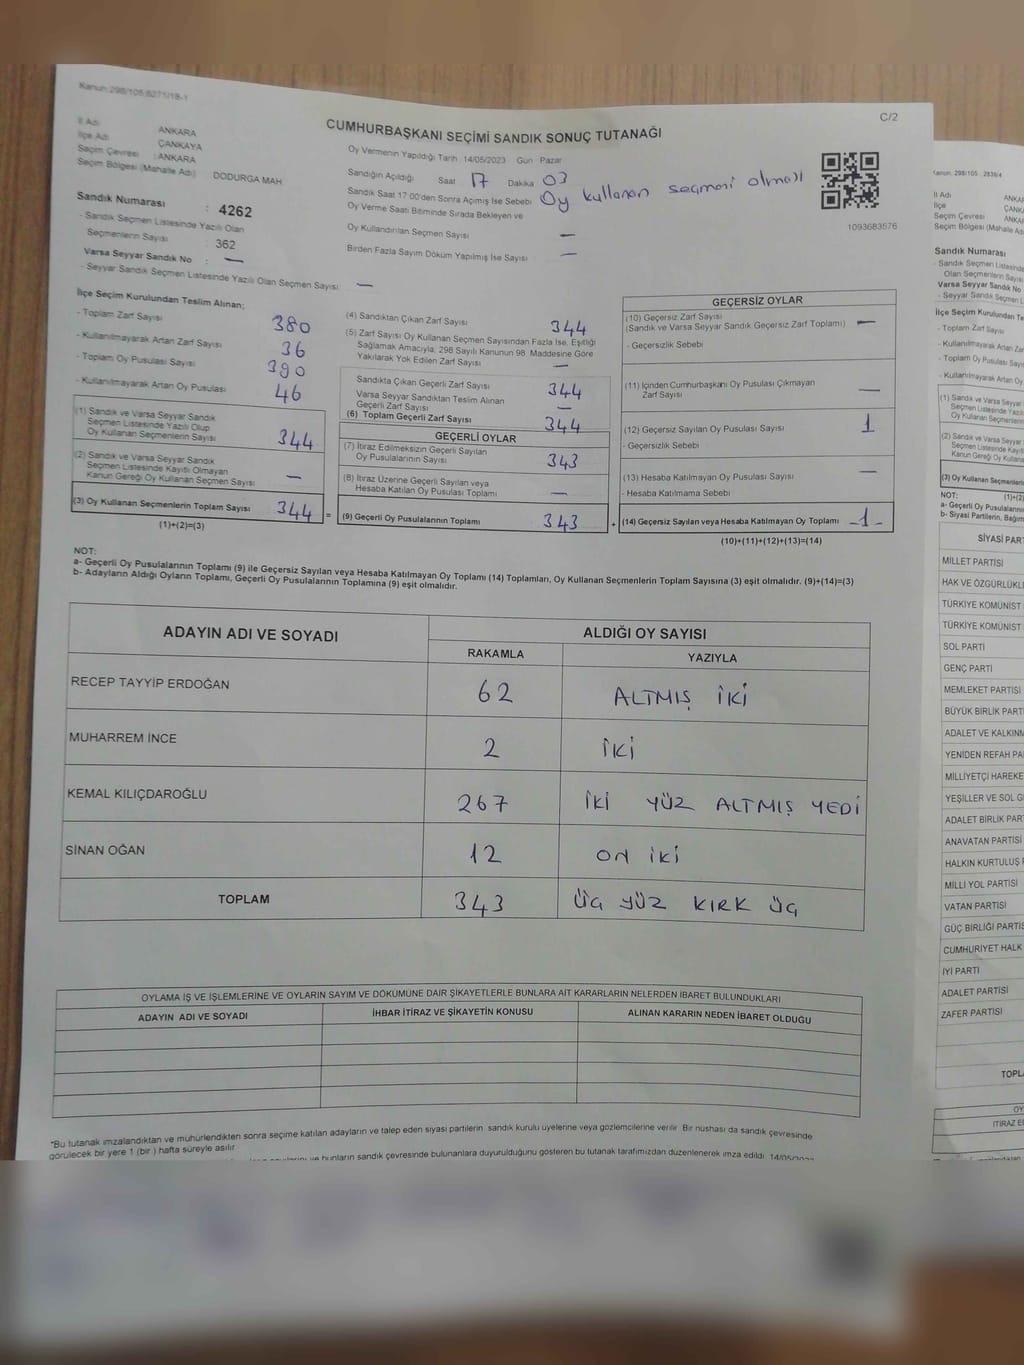 Kanun:298/105;6271/18-1
C/2
CUMHURBAŞKANI SEÇİMİ SANDIK SONUÇ TUTANAĞI
İl Adı : ANKARA
İlçe Adı : ÇANKAYA
Seçim Çevresi : ANKARA
Seçim Bölgesi (Mahalle Adı) DODURGA MAH
Sandık Numarası : 4262
- Sandık Seçmen Listesinde Yazılı Olan
Seçmenlerin Sayısı : 362
Varsa Seyyar Sandık No : —
- Seyyar Sandık Seçmen Listesinde Yazılı Olan Seçmen Sayısı : —
Oy Vermenin Yapıldığı Tarih : 14/05/2023 Gün : Pazar
Sandığın Açıldığı Saat 17 Dakika 03
Sandık Saat 17:00'den Sonra Açılmış İse Sebebi Oy kullanan seçmeni olması
Oy Verme Saati Bitiminde Sırada Bekleyen ve
Oy Kullandırılan Seçmen Sayısı —
Birden Fazla Sayım Döküm Yapılmış İse Sayısı —
1093683576
İlçe Seçim Kurulundan Teslim Alınan;
- Toplam Zarf Sayısı 380
- Kullanılmayarak Artan Zarf Sayısı 36
- Toplam Oy Pusulası Sayısı 390
- Kullanılmayarak Artan Oy Pusulası 46
(1) Sandık ve Varsa Seyyar Sandık
Seçmen Listesinde Yazılı Olup
Oy Kullanan Seçmenlerin Sayısı 344
(2) Sandık ve Varsa Seyyar Sandık
Seçmen Listesinde Kayıtlı Olmayan
Kanun Gereği Oy Kullanan Seçmen Sayısı —
(3) Oy Kullanan Seçmenlerin Toplam Sayısı 344
(1)+(2)=(3)
(4) Sandıktan Çıkan Zarf Sayısı 344
(5) Zarf Sayısı Oy Kullanan Seçmen Sayısından Fazla İse, Eşitliği
Sağlamak Amacıyla, 298 Sayılı Kanunun 98. Maddesine Göre
Yakılarak Yok Edilen Zarf Sayısı —
Sandıkta Çıkan Geçerli Zarf Sayısı 344
Varsa Seyyar Sandıktan Teslim Alınan
Geçerli Zarf Sayısı —
(6) Toplam Geçerli Zarf Sayısı 344
GEÇERLİ OYLAR
(7) İtiraz Edilmeksizin Geçerli Sayılan
Oy Pusulalarının Sayısı 343
(8) İtiraz Üzerine Geçerli Sayılan veya
Hesaba Katılan Oy Pusulası Toplamı —
= (9) Geçerli Oy Pusulalarının Toplamı 343
GEÇERSİZ OYLAR
(10) Geçersiz Zarf Sayısı
(Sandık ve Varsa Seyyar Sandık Geçersiz Zarf Toplamı) —
- Geçersizlik Sebebi
(11) İçinden Cumhurbaşkanı Oy Pusulası Çıkmayan
Zarf Sayısı —
(12) Geçersiz Sayılan Oy Pusulası Sayısı 1
- Geçersizlik Sebebi
(13) Hesaba Katılmayan Oy Pusulası Sayısı —
- Hesaba Katılmama Sebebi
+ (14) Geçersiz Sayılan veya Hesaba Katılmayan Oy Toplamı -1-
(10)+(11)+(12)+(13)=(14)
NOT:
a- Geçerli Oy Pusulalarının Toplamı (9) ile Geçersiz Sayılan veya Hesaba Katılmayan Oy Toplamı (14) Toplamları, Oy Kullanan Seçmenlerin Toplam Sayısına (3) eşit olmalıdır. (9)+(14)=(3)
b- Adayların Aldığı Oyların Toplamı, Geçerli Oy Pusulalarının Toplamına (9) eşit olmalıdır.
ADAYIN ADI VE SOYADI
ALDIĞI OY SAYISI
RAKAMLA YAZIYLA
RECEP TAYYİP ERDOĞAN 62 ALTMIŞ İKİ
MUHARREM İNCE 2 İKİ
KEMAL KILIÇDAROĞLU 267 İKİ YÜZ ALTMIŞ YEDİ
SİNAN OĞAN 12 ON İKİ
TOPLAM 343 ÜÇ YÜZ KIRK ÜÇ
OYLAMA İŞ VE İŞLEMLERİNE VE OYLARIN SAYIM VE DÖKÜMÜNE DAİR ŞİKAYETLERLE BUNLARA AİT KARARLARIN NELERDEN İBARET BULUNDUKLARI
ADAYIN ADI VE SOYADI İHBAR İTİRAZ VE ŞİKAYETİN KONUSU ALINAN KARARIN NEDEN İBARET OLDUĞU
*Bu tutanak imzalandıktan ve mühürlendikten sonra seçime katılan adayların ve talep eden siyasi partilerin sandık kurulu üyelerine veya gözlemcilerine verilir. Bir nüshası da sandık çevresinde
görülecek bir yere 1 (bir) hafta süreyle asılır.
bunların sandık çevresinde bulunanlara duyurulduğunu gösteren bu tutanak tarafımızdan düzenlenerek imza edildi. 14/05/2023
Kanun: 298/105 2839/4
İl Adı ANKA
İlçe ÇANK
Seçim Çevresi ANKA
Seçim Bölgesi (Mahalle Adı)
Sandık Numarası
- Sandık Seçmen Listesinde
Olan Seçmenlerin Sayıs
Varsa Seyyar Sandık No
- Seyyar Sandık Seçmen L
İlçe Seçim Kurulundan Te
- Toplam Zarf Sayısı
- Kullanılmayarak Artan Zar
- Toplam Oy Pusulası Sayıs
- Kullanılmayarak Artan Oy
(1) Sandık ve Varsa Seyyar
Seçmen Listesinde Yazıl
Oy Kullanan Seçmenlerin
(2) Sandık ve Varsa Seyyar
Seçmen Listesinde Kayıtlı
Kanun Gereği Oy Kullana
(3) Oy Kullanan Seçmenlerin
NOT: (1)+(2)
a- Geçerli Oy Pusulalarının
b- Siyasi Partilerin, Bağım
SİYASİ PAR
MİLLET PARTİSİ
HAK VE ÖZGÜRLÜKL
TÜRKİYE KOMÜNİST
TÜRKİYE KOMÜNİST
SOL PARTİ
GENÇ PARTİ
MEMLEKET PARTİSİ
BÜYÜK BİRLİK PART
ADALET VE KALKINM
YENİDEN REFAH PA
MİLLİYETÇİ HAREKE
YEŞİLLER VE SOL G
ADALET BİRLİK PAR
ANAVATAN PARTİSİ
HALKIN KURTULUŞ P
MİLLİ YOL PARTİSİ
VATAN PARTİSİ
GÜÇ BİRLİĞİ PARTİS
CUMHURİYET HALK
İYİ PARTİ
ADALET PARTİSİ
ZAFER PARTİSİ
TOPL
OY
İTİRAZ E